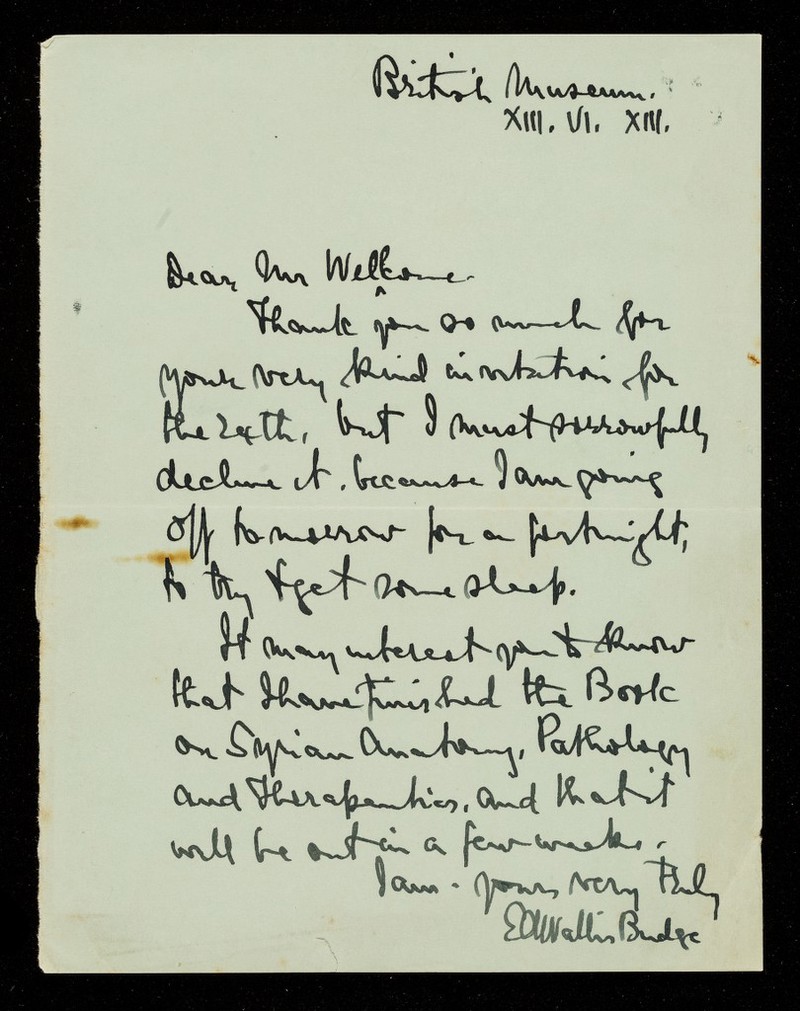 British Museum.
XIII. VI. XIII.
Dear Mr Wellcome.
Thank you so much for
your very kind invitation for
the 24th, but I must sorrowfully
decline it, because I am going
off tomorrow for a fortnight,
to try & get some sleep.
It may interest you to know
that I have finished the Book
on Syrian Anatomy, Pathology
and Therapeutics, and that it
will be out in a few weeks.
I am - yours very truly
EA Wallis Budge